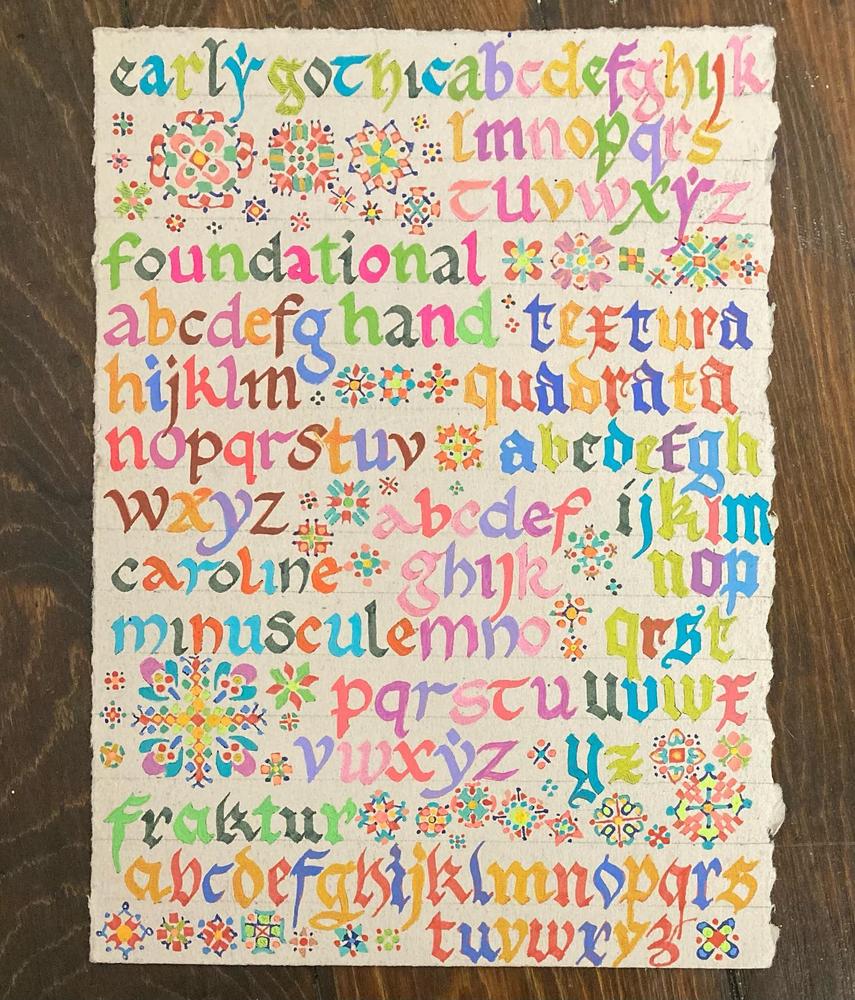 early gothic abcdefghijk
lmnopqrs
tuvwxyz
foundational
abcdefg hand textura
hijklm quadrata
nopqrstuv abcdefgh
wxyz abcdef ijklm
caroline ghijk nop
minuscule mno qrst
pqrstu uvwx
vwxyz yz
fraktur
abcdefghijklmnopqrs
tuvwxyz